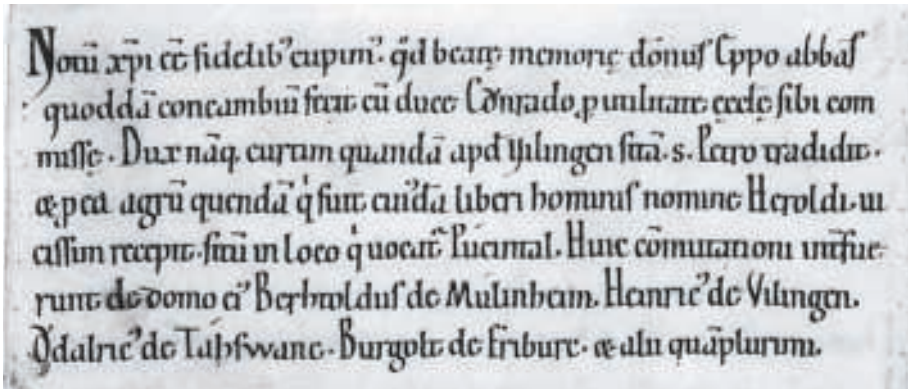 Notū xp̄i eē fidelib᾽ cupim᾽. qd̄ beatę memorię dōnuſ Eppo abbaſ
quoddā concambiū fecit cū duce Cǒnrado, p utilitate ęcclę ſibi com
miſſę. Dux nāq, curtim quandā apd̄ Vilingen ſitā. s. Petro tradidit.
& p ea agrū quendā qͥ fuit cuiᵈdā liberi hominiſ nomine Heroldi. ui
ciſſim recepit. ſitū in loco qͥ uocat᾽ Rūcimtal. Huic cōmutationi int̄fue
runt de domo ei᾽ Berhtolduſ de Mulinheim. Heinric᾽ de Vilingen.
Ǒdalric᾽ de Tahſwanc. Burgolt de Friburc. & alii quāplurimi.